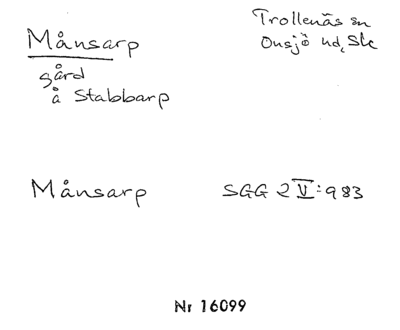 Månsarp
gård
å Stabbarp
Trollenäs sn
Onsjö hd, Sk
Månsarp
SGG 2 V:983
Nr 16099